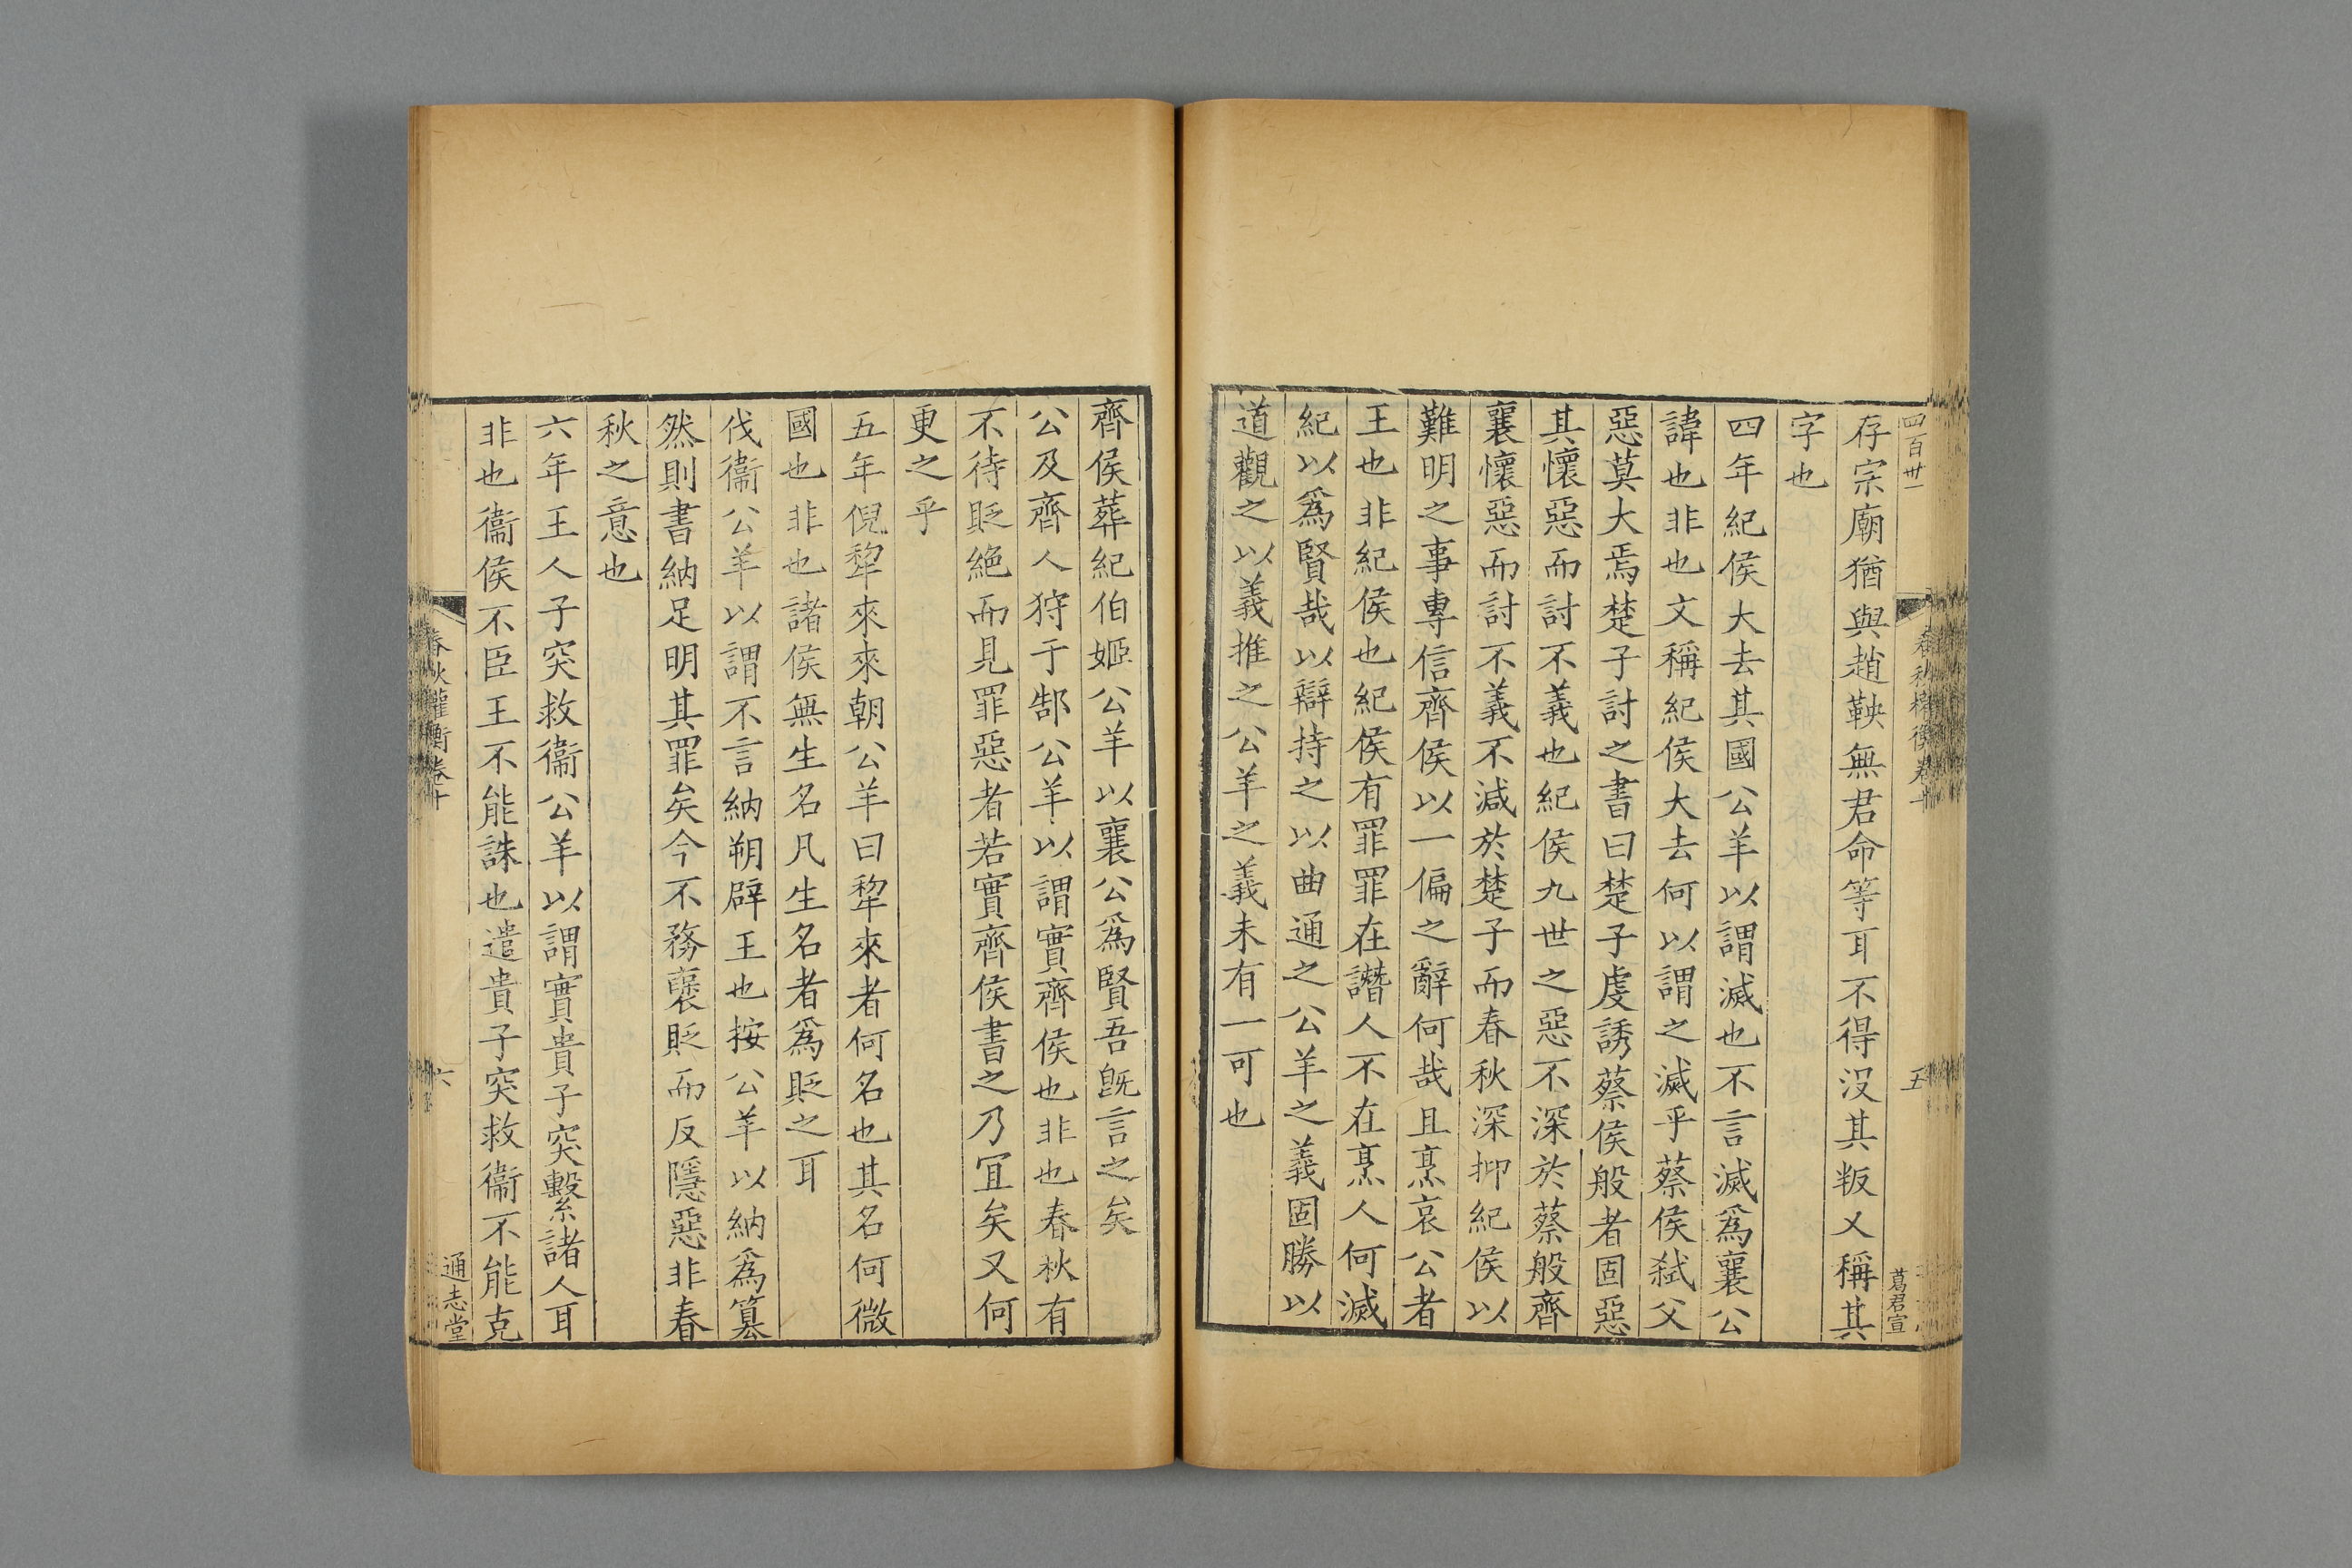 四百卅一
春秋權衡卷十
五
葛君宣
存宗廟猶與趙鞅無君命等耳不得沒其叛又稱其
字也
四年紀侯大去其國公羊以謂滅也不言滅爲襄公
諱也非也文稱紀侯大去何以謂之滅乎蔡侯弑父
惡莫大焉楚子討之書曰楚子虔誘蔡侯般者固惡
其懷惡而討不義也紀侯九世之惡不深於蔡般齊
襄懷惡而討不義不減於楚子而春秋深抑紀侯以
難明之事專信齊侯以一偏之辭何哉且烹哀公者
王也非紀侯也紀侯有罪罪在譖人不在烹人何滅
紀以爲賢哉以辯持之以曲通之公羊之義固勝以
道觀之以義推之公羊之義未有一可也
齊侯葬紀伯姬公羊以襄公爲賢吾旣言之矣
公及齊人狩于郜公羊以謂實齊侯也非也春秋有
不待貶絕而見罪惡者若實齊侯書之乃宜矣又何
更之乎
五年倪犂來來朝公羊曰犂來者何名也其名何微
國也非也諸侯無生名凡生名者爲貶之耳
伐衞公羊以謂不言納朔辟王也按公羊以納爲篡
然則書納足明其罪矣今不務襃貶而反隱惡非春
秋之意也
六年王人子突救衞公羊以謂實貴子突繫諸人耳
非也衞侯不臣王不能誅也遣貴子突救衞不能克
春秋權衡卷十
六
通志堂